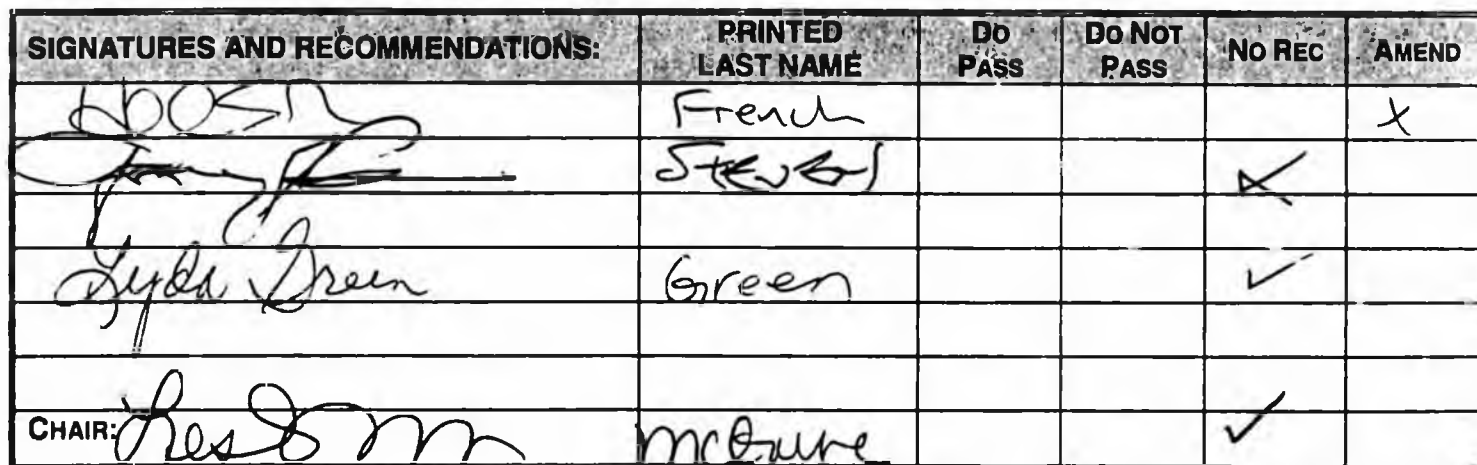 SIGNATURES AND RECOMMENDATIONS: PRINTED LAST NAME DO PASS DO NOT PASS NO REC AMEND
French X
Stevens ✓
Lyda Green Green ✓
CHAIR: McGuire ✓